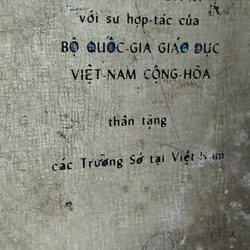 với sư hợp-tác của
BỘ QUỐC-GIA GIÁO DỤC
VIỆT-NAM CỘNG-HÒA
thân tặng
các Trường Sở tại Việt Nam